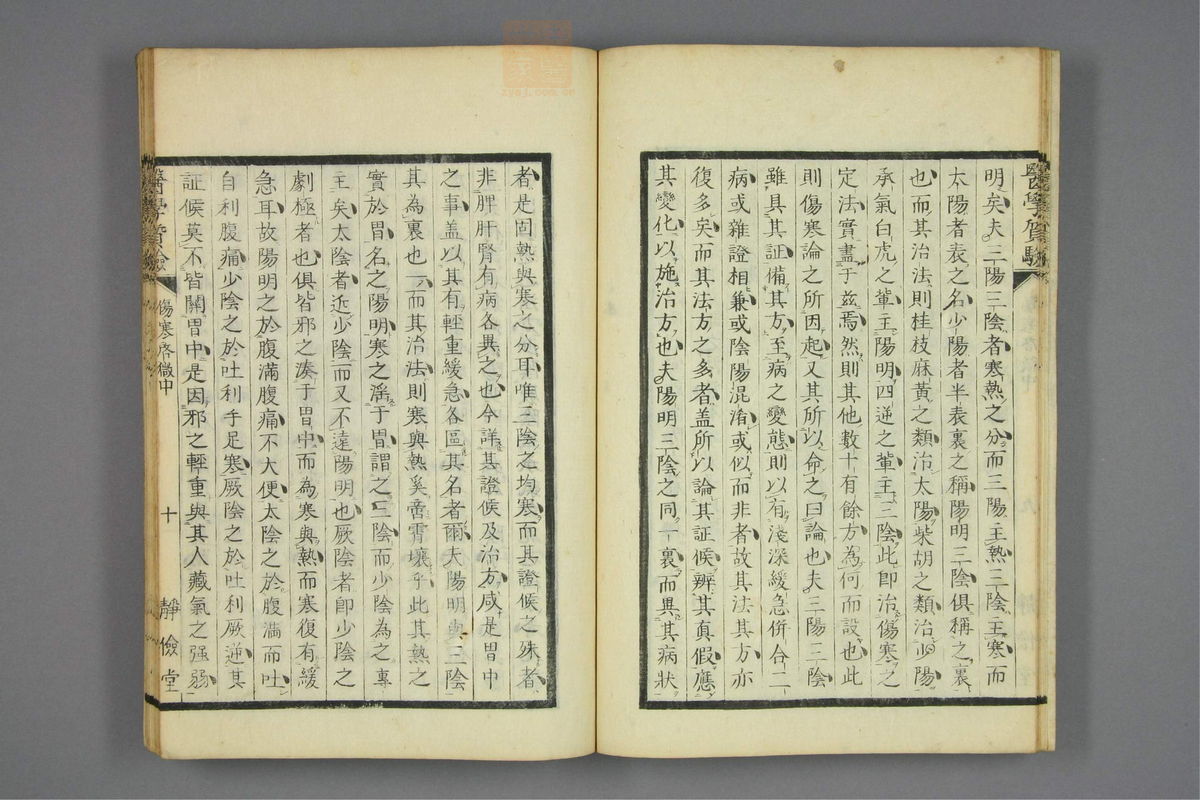 明矣夫三陽三陰者寒熱之分而三陽主熱三陰主寒而
太陽者表之名少陽者半表裏之稱陽明三陰俱稱之裏
也而其治法則桂枝麻黃之類治太陽柴胡之類治少陽
承氣白虎之軰主陽明四逆之軰主三陰此即治傷寒之
定法實盡于兹焉然則其他數十有餘方為何而設也此
則傷寒論之所因起又其所以命之曰論也夫三陽三陰
雖具其証備其方至病之變態則以有淺深緩急併合二
病或雜證相兼或陰陽混淆或似而非者故其法其方亦
復多矣而其法方之多者蓋所以論其証候辨其真假應
其變化以施治方也夫陽明三陰之同一裏而異其病狀
醫學質驗
者是固熱與寒之分耳唯三陰之均寒而其證候之殊者
非脾肝腎有病各異之也今詳其證候及治方咸是胃中
之事盖以其有輕重緩急各區其名者爾夫陽明與三陰
其為裏也一而其治法則寒與熱奚啻霄壤乎此其熱之
實於胃名之陽明寒之淫于胃謂之三陰而少陰為之專
主矣太陰者近少陰而又不遠陽明也厥陰者即少陰之
劇極者也俱皆邪之湊于胃中而為寒與熱而寒復有緩
急耳故陽明之於腹滿腹痛不大便太陰之於腹滿而吐
自利腹痛少陰之於吐利手足寒厥陰之於吐利厥逆其
証候莫不皆關胃中是因邪之輕重與其人藏氣之强弱
醫學質驗
傷寒啓微中
十
靜儉堂